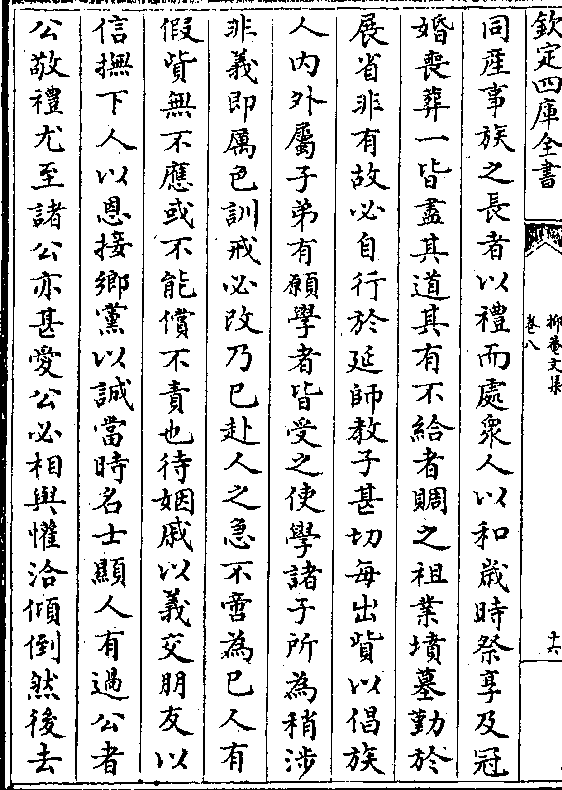 欽定四庫全書
抑菴文集
卷八
十六
同産事族之長者以禮而處衆人以和歲時祭享及冠
婚喪葬一皆盡其道其有不給者賙之祖業墳墓勤於
展省非有故必自行於延師教子甚切每出貲以倡族
人内外屬子弟有願學者皆受之使學諸子所為稍涉
非義即厲色訓戒必改乃已赴人之急不啻為已人有
假貲無不應或不能償不責也待姻戚以義交朋友以
信撫下人以恩接鄉黨以誠當時名士顯人有過公者
公敬禮尤至諸公亦甚愛公必相與懽洽傾倒然後去